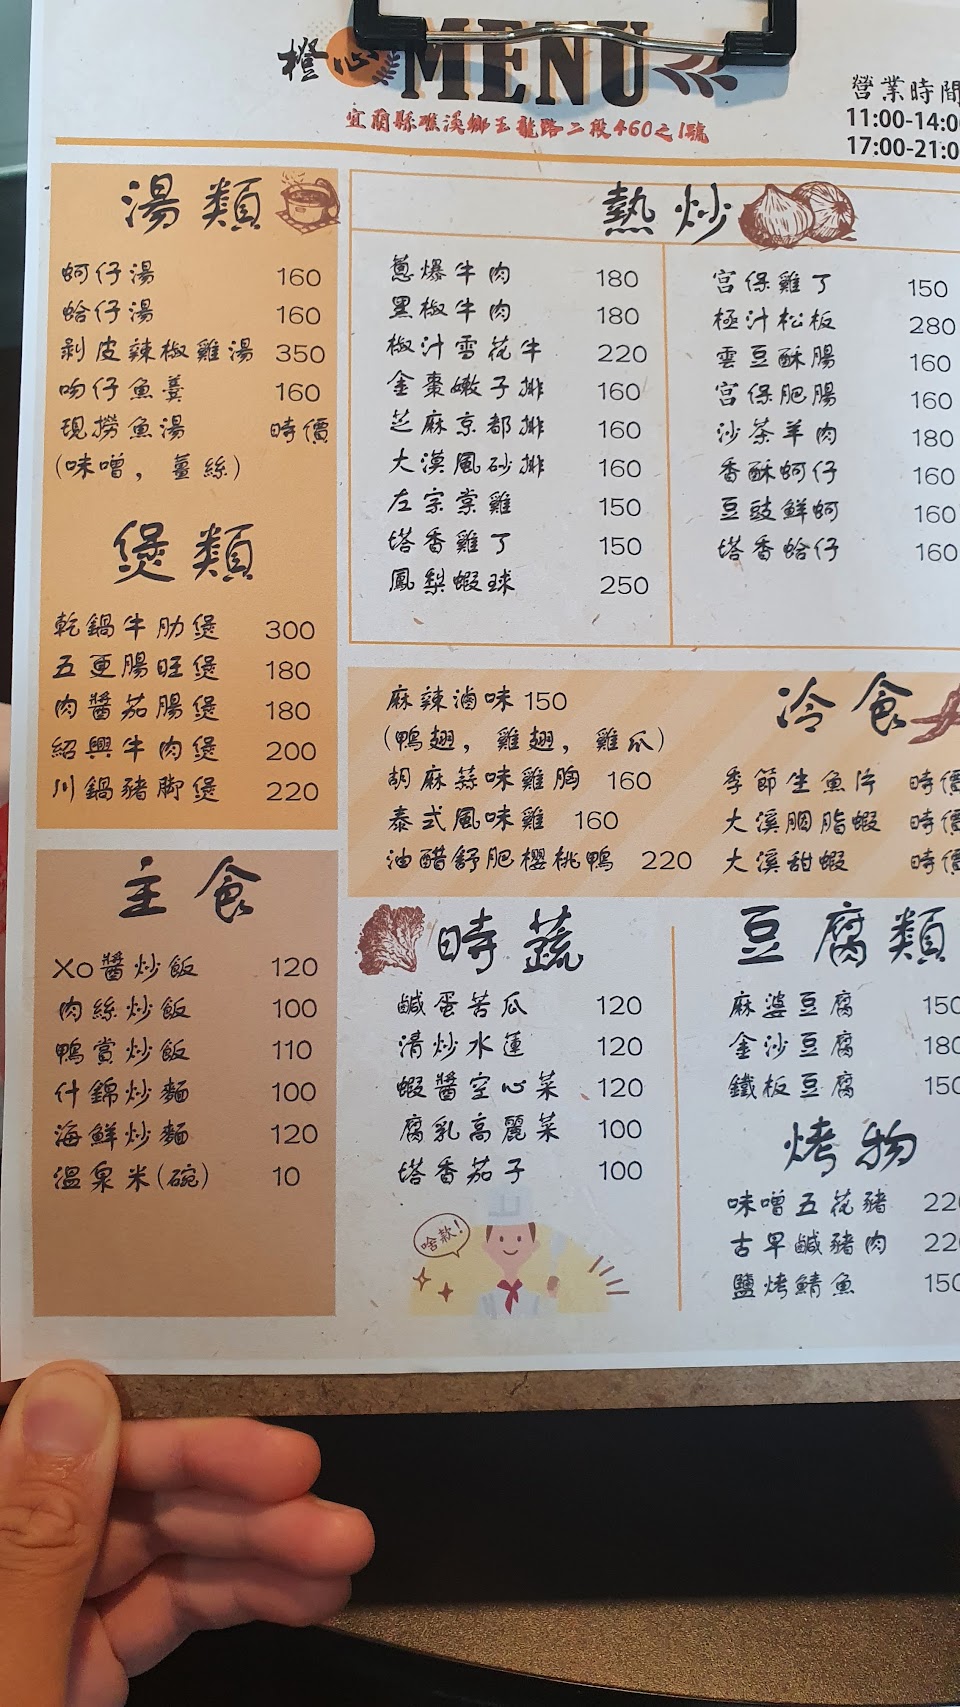 橙心 MENU
宜蘭縣礁溪鄉玉龍路二段460之1號
營業時間
11:00-14:0
17:00-21:0
湯類
蚵仔湯 160
蛤仔湯 160
剝皮辣椒雞湯 350
吻仔魚羹 160
現撈魚湯 時價
(味噌，薑絲)
煲類
乾鍋牛肋煲 300
五更腸旺煲 180
肉醬茄腸煲 180
紹興牛肉煲 200
川鍋豬腳煲 220
主食
XO醬炒飯 120
肉絲炒飯 100
鴨賞炒飯 110
什錦炒麵 100
海鮮炒麵 120
溫泉米(碗) 10
熱炒
蔥爆牛肉 180
黑椒牛肉 180
椒汁雪花牛 220
金棗嫩子排 160
芝麻京都排 160
大漠風砂排 160
左宗棠雞 150
塔香雞丁 150
鳳梨蝦球 250
宮保雞丁 150
極汁松板 280
雲豆酥腸 160
宮保肥腸 160
沙茶羊肉 180
香酥蚵仔 160
豆豉鮮蚵 160
塔香蛤仔 160
冷食
麻辣滷味 150
(鴨翅，雞翅，雞爪)
胡麻蒜味雞胸 160
泰式風味雞 160
油醋舒肥櫻桃鴨 220
季節生魚片 時價
大溪胭脂蝦 時價
大溪甜蝦 時價
時蔬
鹹蛋苦瓜 120
清炒水蓮 120
蝦醬空心菜 120
腐乳高麗菜 100
塔香茄子 100
啥款!
豆腐類
麻婆豆腐 150
金沙豆腐 180
鐵板豆腐 150
烤物
味噌五花豬 220
古早鹹豬肉 220
鹽烤鯖魚 150